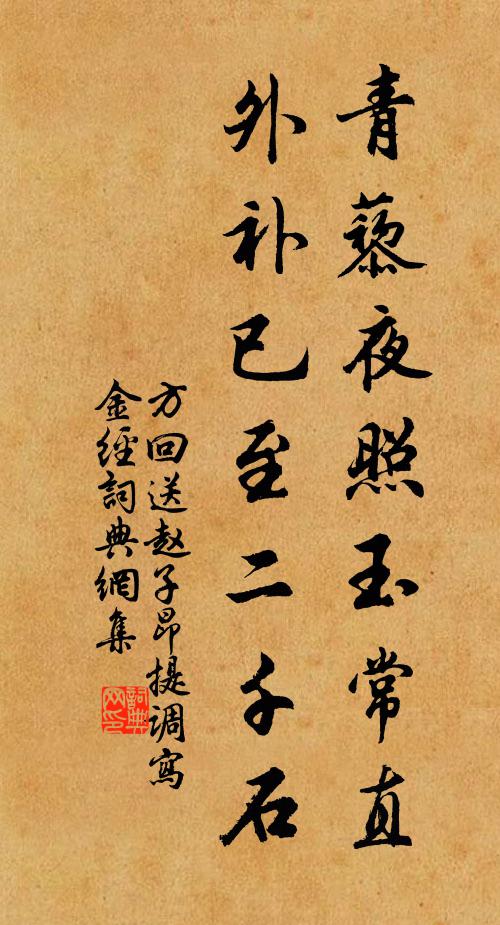 青藜夜照玉常直
外补已至二千石
方回送赵子昂提调寫
金經詞典網集
詞典网印